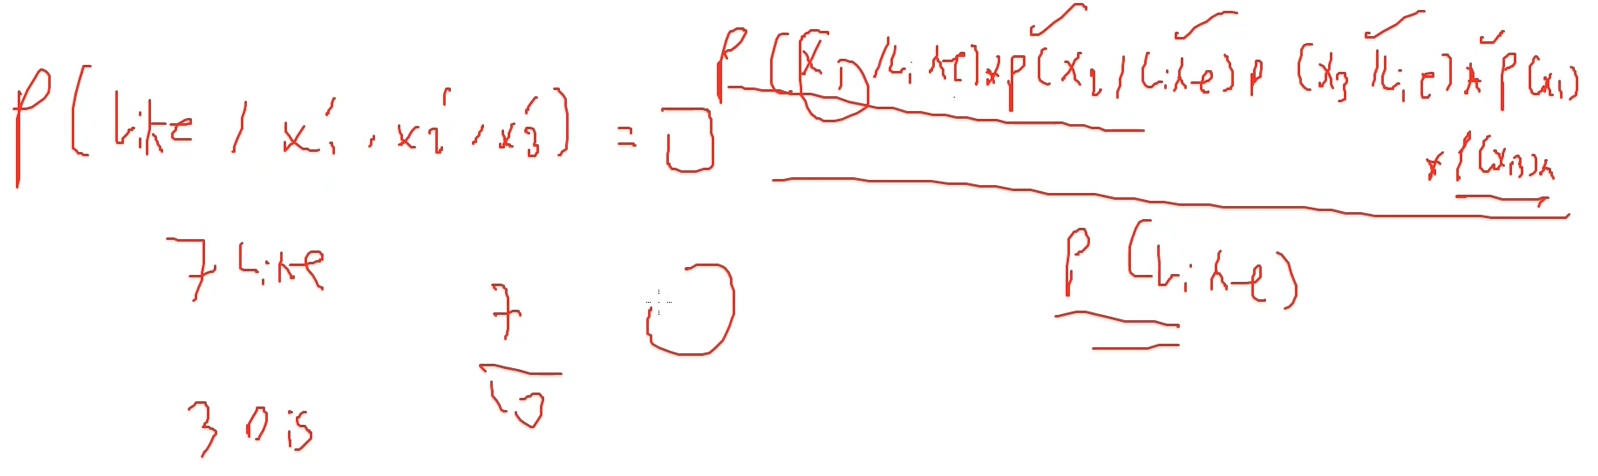 P(Like / x1', x2', x3') = P(x1/Like)*P(x2/Like)P(x3/Like)*P(x1)
*P(x3)*
P(Like)
7 Like
7
10
3 Dis